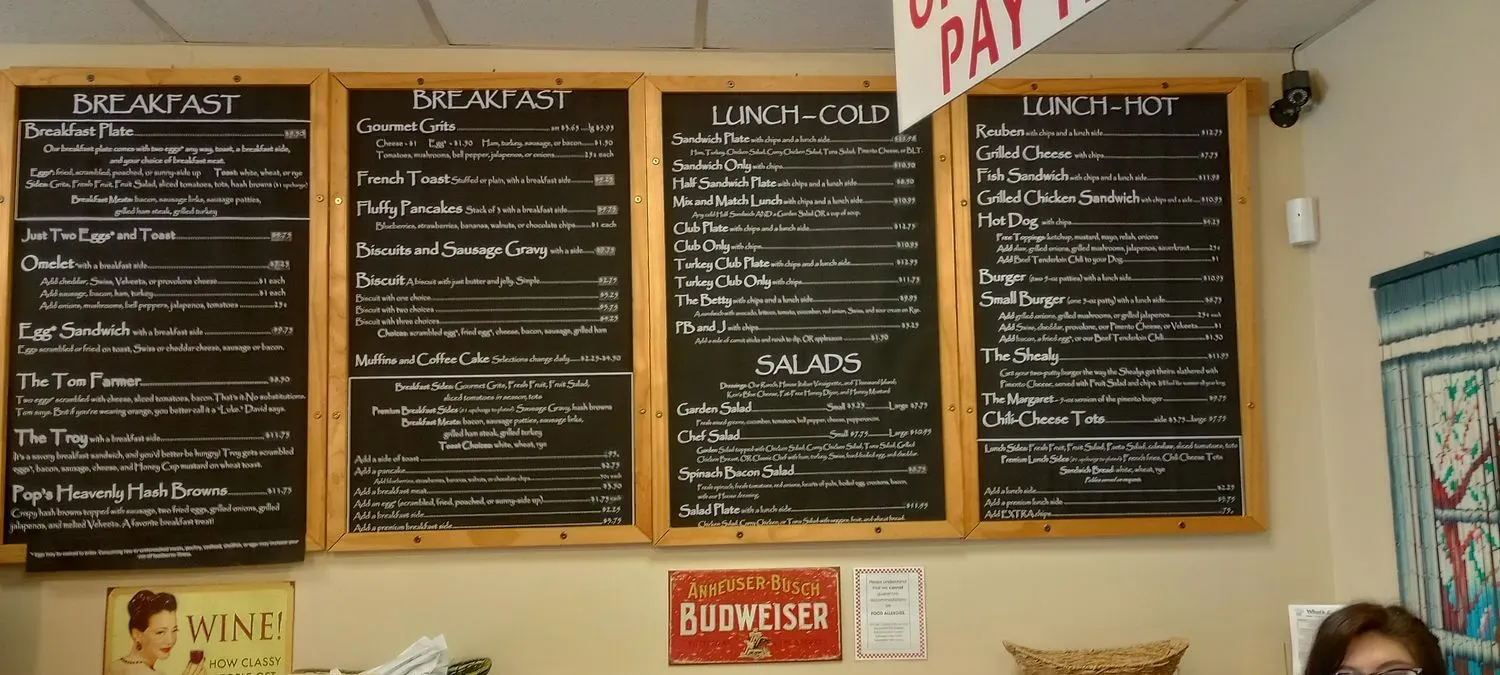 PAY
BREAKFAST
Breakfast Plate
Our breakfast plate comes with two eggs* any way, toast, a breakfast side,
and your choice of breakfast meat.
Eggs*: fried, scrambled, poached, or sunny-side up Toast: white, wheat, or rye
Sides: Grits, Fresh Fruit, Fruit Salad, sliced tomatoes, tots, hash browns ($1 upcharge)
Breakfast Meats: bacon, sausage links, sausage patties,
grilled ham steak, grilled turkey
Just Two Eggs* and Toast
Omelet* with a breakfast side
Add cheddar, Swiss, Velveeta, or provolone cheese $1 each
Add sausage, bacon, ham, turkey $1 each
Add onions, mushrooms, bell peppers, jalapenos, tomatoes 25¢
Egg* Sandwich with a breakfast side
Eggs scrambled or fried on toast, Swiss or cheddar cheese, sausage or bacon.
The Tom Farmer $8.50
Two eggs* scrambled with cheese, sliced tomatoes, bacon. That's it. No substitutions.
Tom says. But if you're wearing orange, you better call it a "Luke," David says.
The Troy with a breakfast side $11.75
It's a savory breakfast sandwich, and you'd better be hungry! Troy gets scrambled
eggs*, bacon, sausage, cheese, and Honey Cup mustard on wheat toast.
Pop's Heavenly Hash Browns $11.75
Crispy hash browns topped with sausage, two fried eggs, grilled onions, grilled
jalapenos, and melted Velveeta. A favorite breakfast treat!
BREAKFAST
Gourmet Grits sm $3.65 lg $5.95
Cheese - $1 Egg* - $1.50 Ham, turkey, sausage, or bacon $1.50
Tomatoes, mushrooms, bell pepper, jalapeno, or onions 25¢ each
French Toast Stuffed or plain, with a breakfast side
Fluffy Pancakes Stack of 3 with a breakfast side
Blueberries, strawberries, bananas, walnuts, or chocolate chips $1 each
Biscuits and Sausage Gravy with a side
Biscuit A biscuit with just butter and jelly. Simple. $2.75
Biscuit with one choice
Biscuit with two choices
Biscuit with three choices
Choices: scrambled egg*, fried egg*, cheese, bacon, sausage, grilled ham
Muffins and Coffee Cake Selections change daily $2.25-$4.50
Breakfast Sides: Gourmet Grits, Fresh Fruit, Fruit Salad,
sliced tomatoes in season, tots
Premium Breakfast Sides ($1 upcharge to plates): Sausage Gravy, hash browns
Breakfast Meats: bacon, sausage patties, sausage links,
grilled ham steak, grilled turkey
Toast Choices: white, wheat, rye
Add a side of toast
Add a pancake $2.75
Add blueberries, strawberries, bananas, walnuts, or chocolate chips 50¢ each
Add a breakfast meat $3.50
Add an egg* (scrambled, fried, poached, or sunny-side up) $1.75 each
Add a breakfast side $2.25
Add a premium breakfast side $3.75
LUNCH-COLD
Sandwich Plate with chips and a lunch side
Ham, Turkey, Chicken Salad, Curry Chicken Salad, Tuna Salad, Pimento Cheese, or BLT.
Sandwich Only with chips $10.50
Half Sandwich Plate with chips and a lunch side $8.50
Mix and Match Lunch with chips and a lunch side $10.95
Any cold Half Sandwich AND a Garden Salad OR a cup of soup.
Club Plate with chips and a lunch side $12.75
Club Only with chips $10.95
Turkey Club Plate with chips and a lunch side $12.95
Turkey Club Only with chips $11.75
The Betty with chips and a lunch side $9.95
A sandwich with avocado, lettuce, tomato, cucumber, red onion, Swiss, and sour cream on Rye.
PB and J with chips $3.25
Add a side of carrot sticks and ranch to dip, OR applesauce $1.50
SALADS
Dressings: Our Ranch, House Italian Vinaigrette, and Thousand Island;
Ken's Blue Cheese, Fat-Free Honey Dijon, and Honey Mustard
Garden Salad Small $5.25 Large $7.75
Fresh mixed greens, cucumber, tomatoes, bell pepper, cheese, pepperoncini.
Chef Salad Small $7.75 Large $10.95
Garden Salad topped with Chicken Salad, Curry Chicken Salad, Tuna Salad, Grilled
Chicken Breast, OR Classic Chef with ham, turkey, Swiss, hard-boiled egg, and cheddar.
Spinach Bacon Salad
Fresh spinach, fresh tomatoes, red onions, hearts of palm, boiled egg, croutons, bacon,
with our House dressing.
Salad Plate with a lunch side $11.95
Chicken Salad, Curry Chicken, or Tuna Salad with veggies, fruit, and wheat bread.
LUNCH-HOT
Reuben with chips and a lunch side $12.75
Grilled Cheese with chips $7.75
Fish Sandwich with chips and a lunch side $11.95
Grilled Chicken Sandwich with chips and a side $10.95
Hot Dog with chips $4.25
Free Toppings: ketchup, mustard, mayo, relish, onions
Add slaw, grilled onions, grilled mushrooms, jalapenos, sauerkraut 25¢
Add Beef Tenderloin Chili to your Dog $1
Burger (two 5-oz patties) with a lunch side $10.95
Small Burger (one 5-oz patty) with a lunch side $8.75
Add grilled onions, grilled mushrooms, or grilled jalapenos 25¢ each
Add Swiss, cheddar, provolone, our Pimento Cheese, or Velveeta $1
Add bacon, a fried egg*, or our Beef Tenderloin Chili $1.50
The Shealy $11.95
Get your two-patty burger the way the Shealys get theirs: slathered with
Pimento Cheese, served with Fruit Salad and chips.
The Margaret - 5-oz version of the pimento burger $9.75
Chili-Cheese Tots side $3.75 large $7.75
Lunch Sides: Fresh Fruit, Fruit Salad, Pasta Salad, coleslaw, sliced tomatoes, tots
Premium Lunch Sides ($1 upcharge to plates): French fries, Chili-Cheese Tots
Sandwich Bread: white, wheat, rye
Add a lunch side $2.25
Add a premium lunch side $3.75
Add EXTRA chips 75¢
WINE!
HOW CLASSY
ANHEUSER-BUSCH
BUDWEISER
Please understand
that we cannot
guarantee
accommodations
FOOD ALLERGIES.